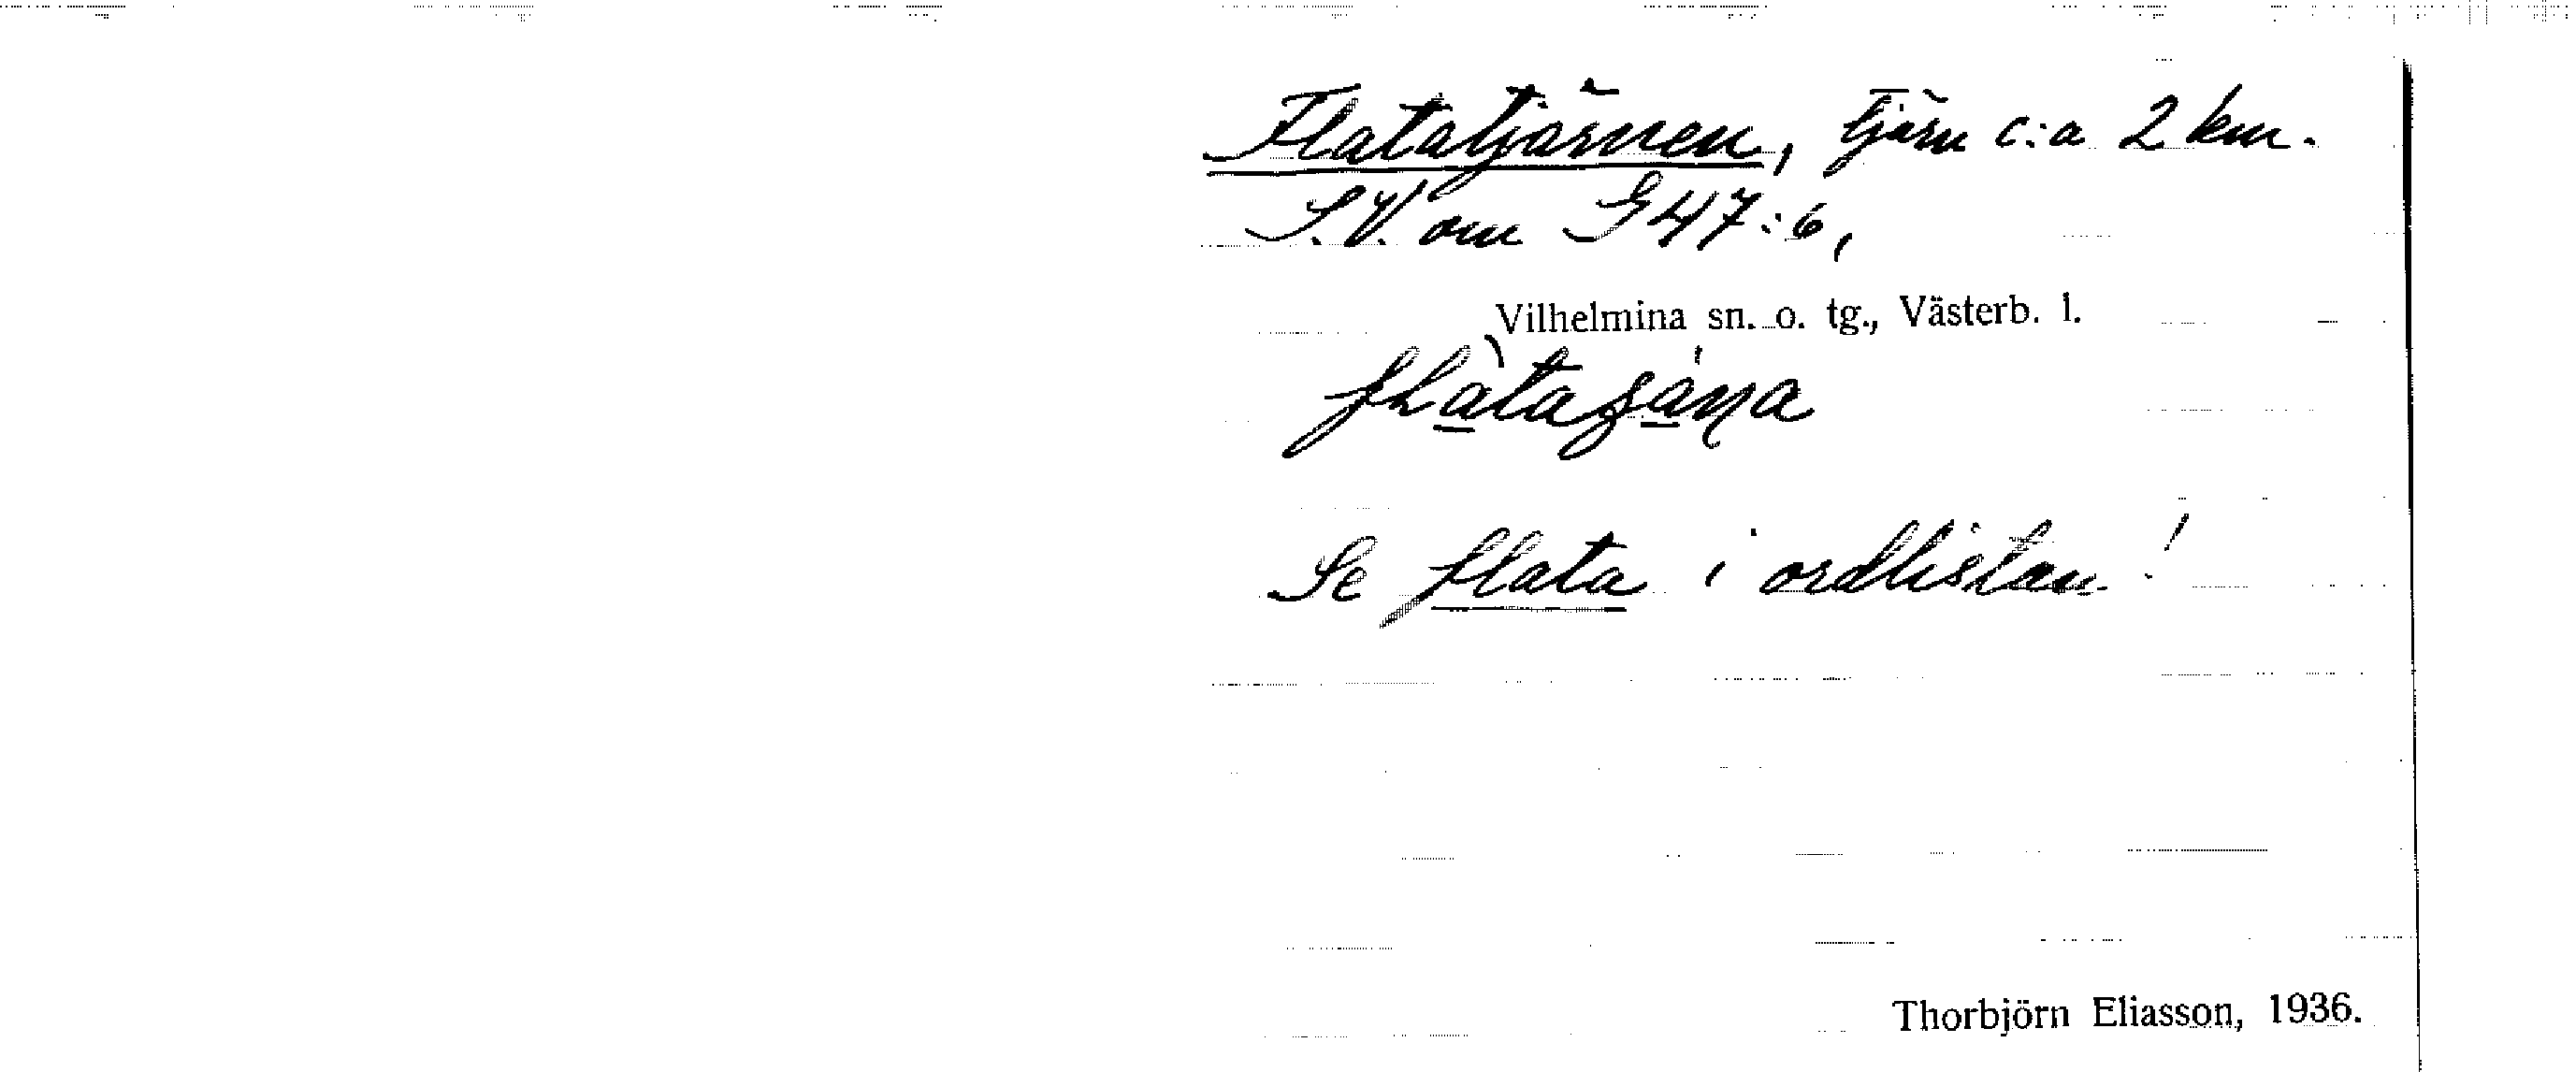 Flatatjärnen, tjärn c:a 2 km.
S.V. om G47:6,
Vilhelmina sn. o. tg., Västerb. l.
Se flata i ordlistan!
Thorbjörn Eliasson, 1936.